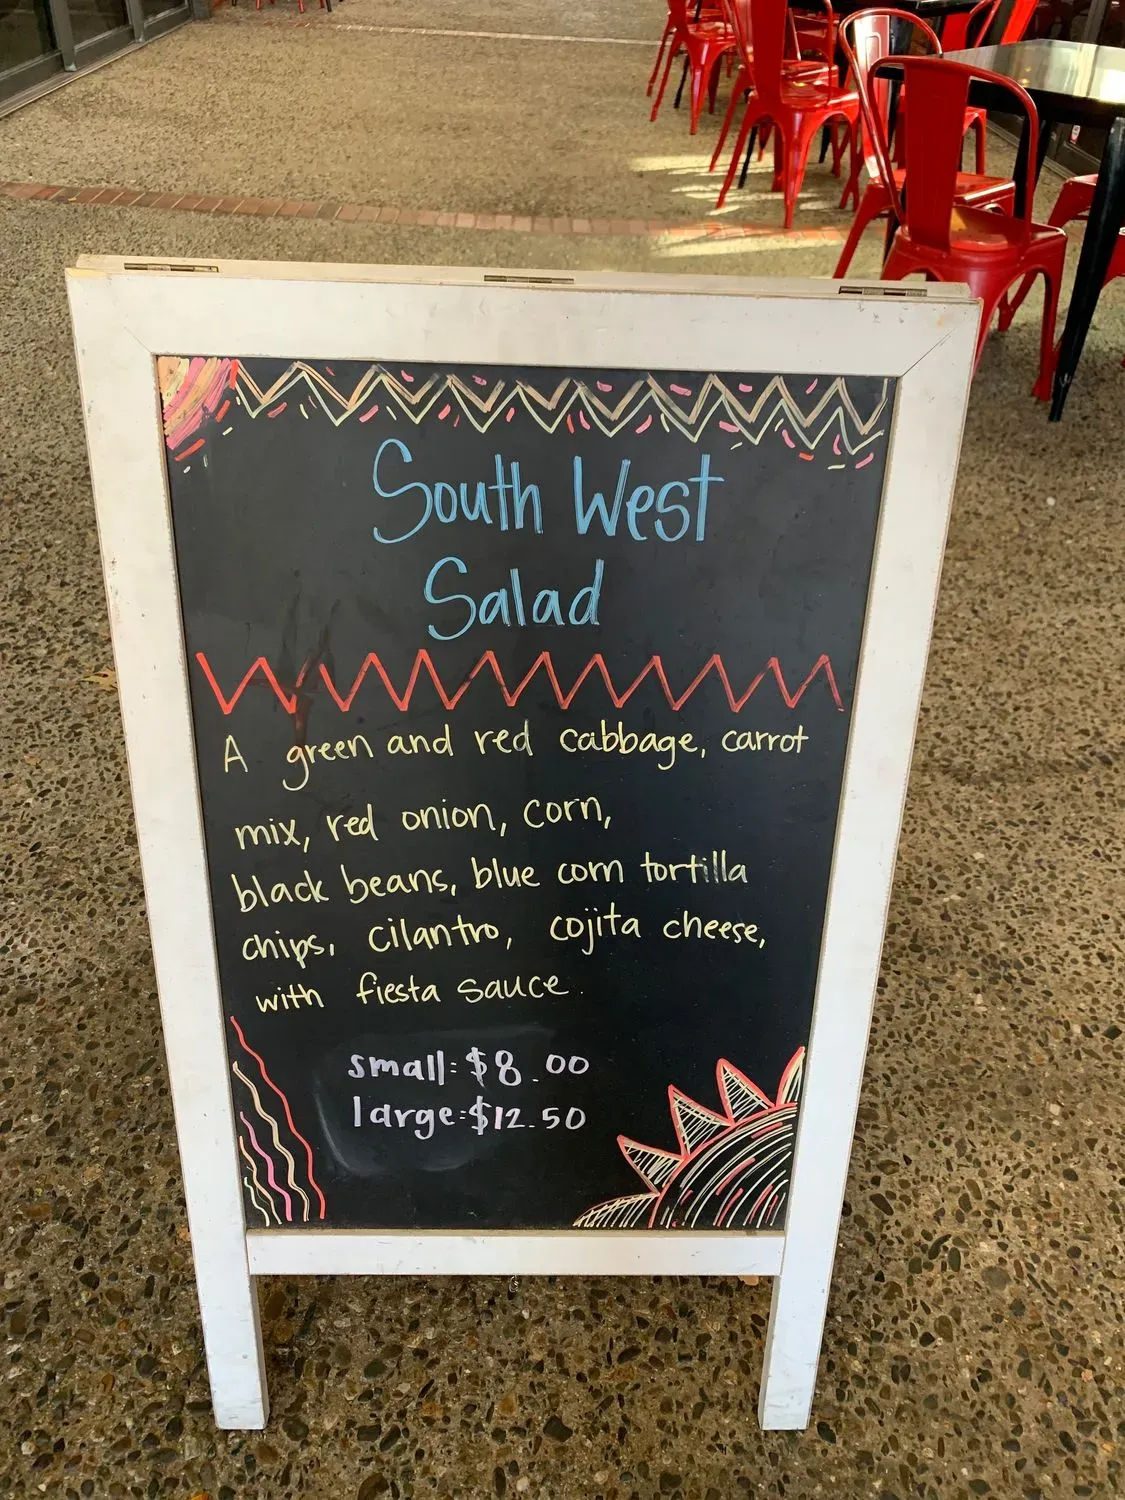 South West
Salad
A green and red cabbage, carrot
mix, red onion, corn,
black beans, blue corn tortilla
chips, cilantro, cojita cheese,
with fiesta sauce.
small: $8.00
large: $12.50